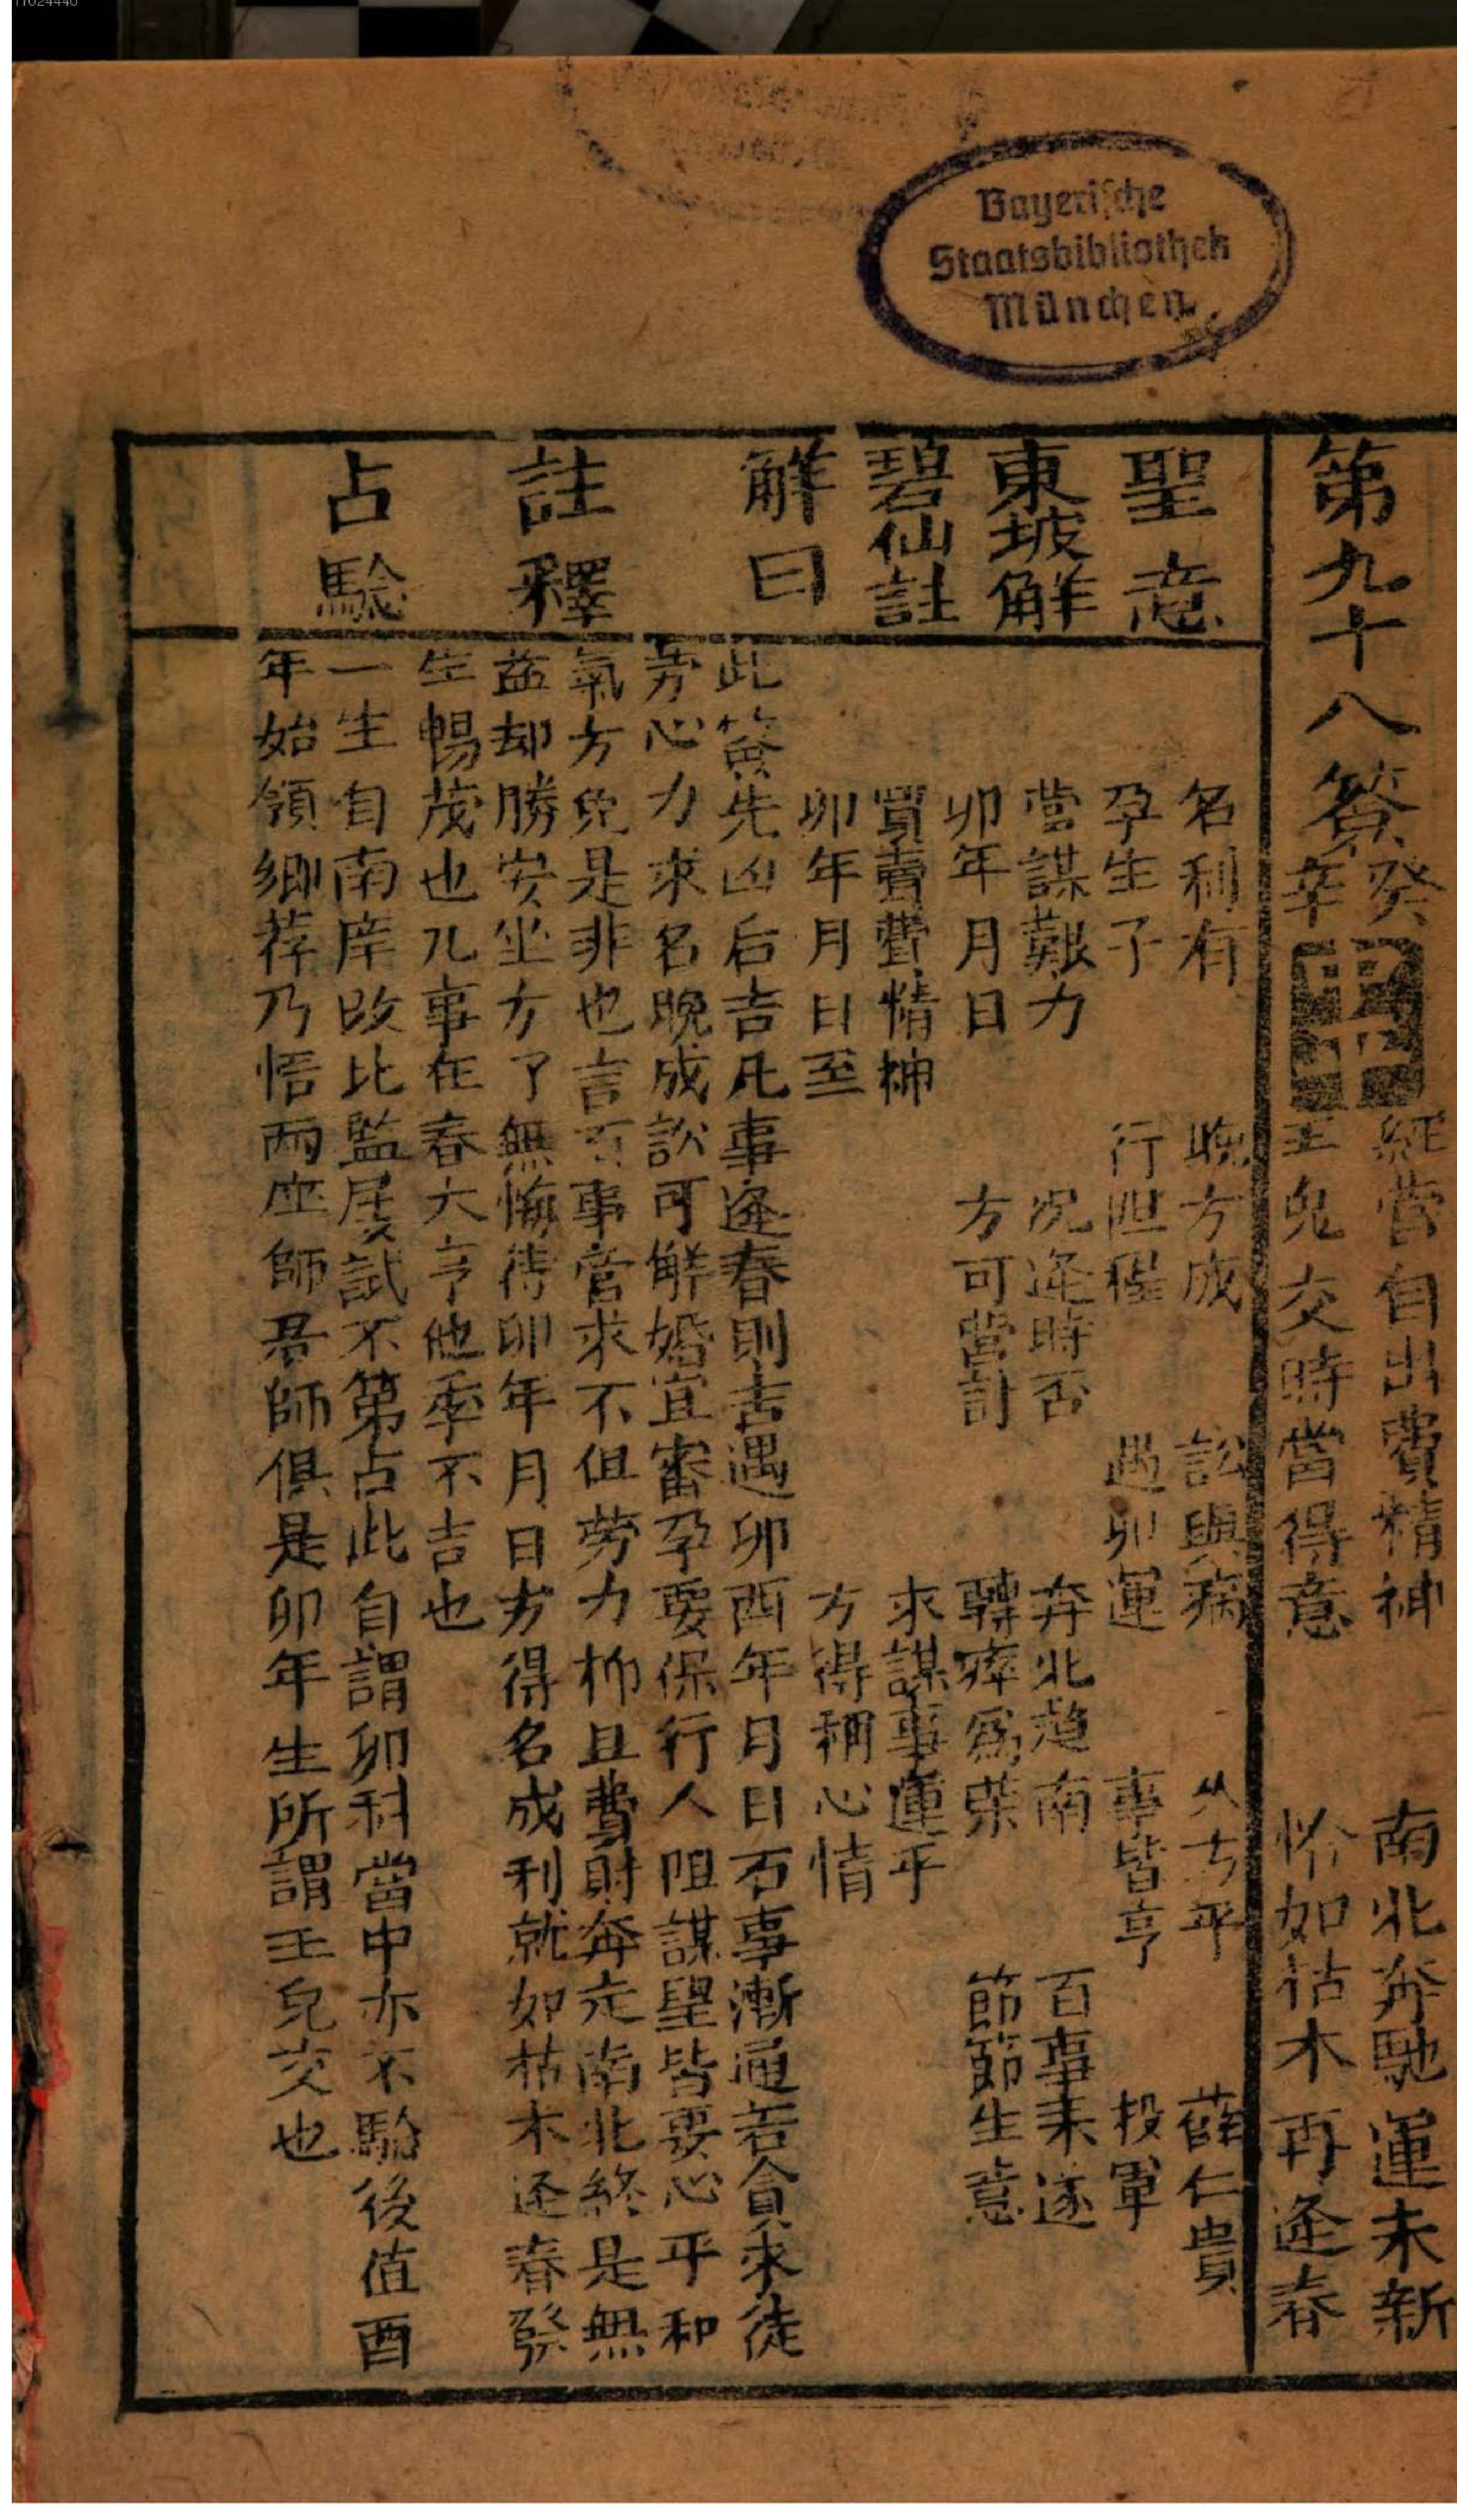 11024440
Bayerische
Staatsbibliothek
München
第九十八簽 癸辛
經營自出費精神 南北奔馳運未新
玉兔交時當得意 恰如枯木再逢春
聖意
名利有 晚方成 訟與病 久方平 薛仁貴
孕生子 行阻程 遇卯運 事皆亨 投軍
東坡解
營謀艱力 况逢時否 奔北趨南 百事未遂
卯年月日 方可營計 轉瘁為榮 節節生意
碧仙註
買賣費精神 求謀事運平
卯年月日至 方得稱心情
解曰
此簽先凶后吉凡事逢春則吉遇卯酉年月日百事漸通若貪求徒
勞心力求名晚成訟可解婚宜審孕要保行人阻謀望皆要心平和
氣方免是非也言百事營求不但勞力抑且費財奔走南北終是無
註釋
益却勝安坐方了無悔待卯年月日方得名成利就如枯木逐春發
生暢茂也凡事在春大亨他季不吉也
占驗
一生自南庠改北監屢試不第占此自謂卯科當中亦不驗後值酉
年始領鄉荐乃悟兩座師房師俱是卯年生所謂玉兔交也